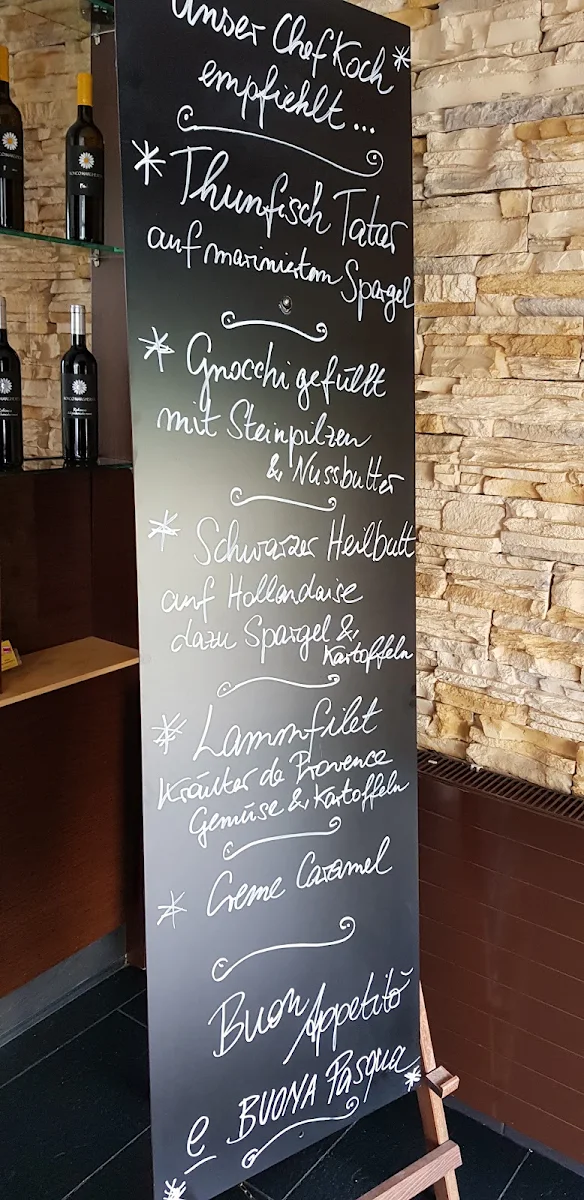 Unser Chefkoch
empfiehlt...
Thunfisch Tatar
auf mariniertem Spargel
Gnocchi gefüllt
mit Steinpilzen
& Nussbutter
Schwarzer Heilbutt
auf Hollandaise
dazu Spargel &
Kartoffeln
Lammfilet
Kräuter de Provence
Gemüse & Kartoffeln
Creme Caramel
Buon Appetito
e BUONA Pasqua